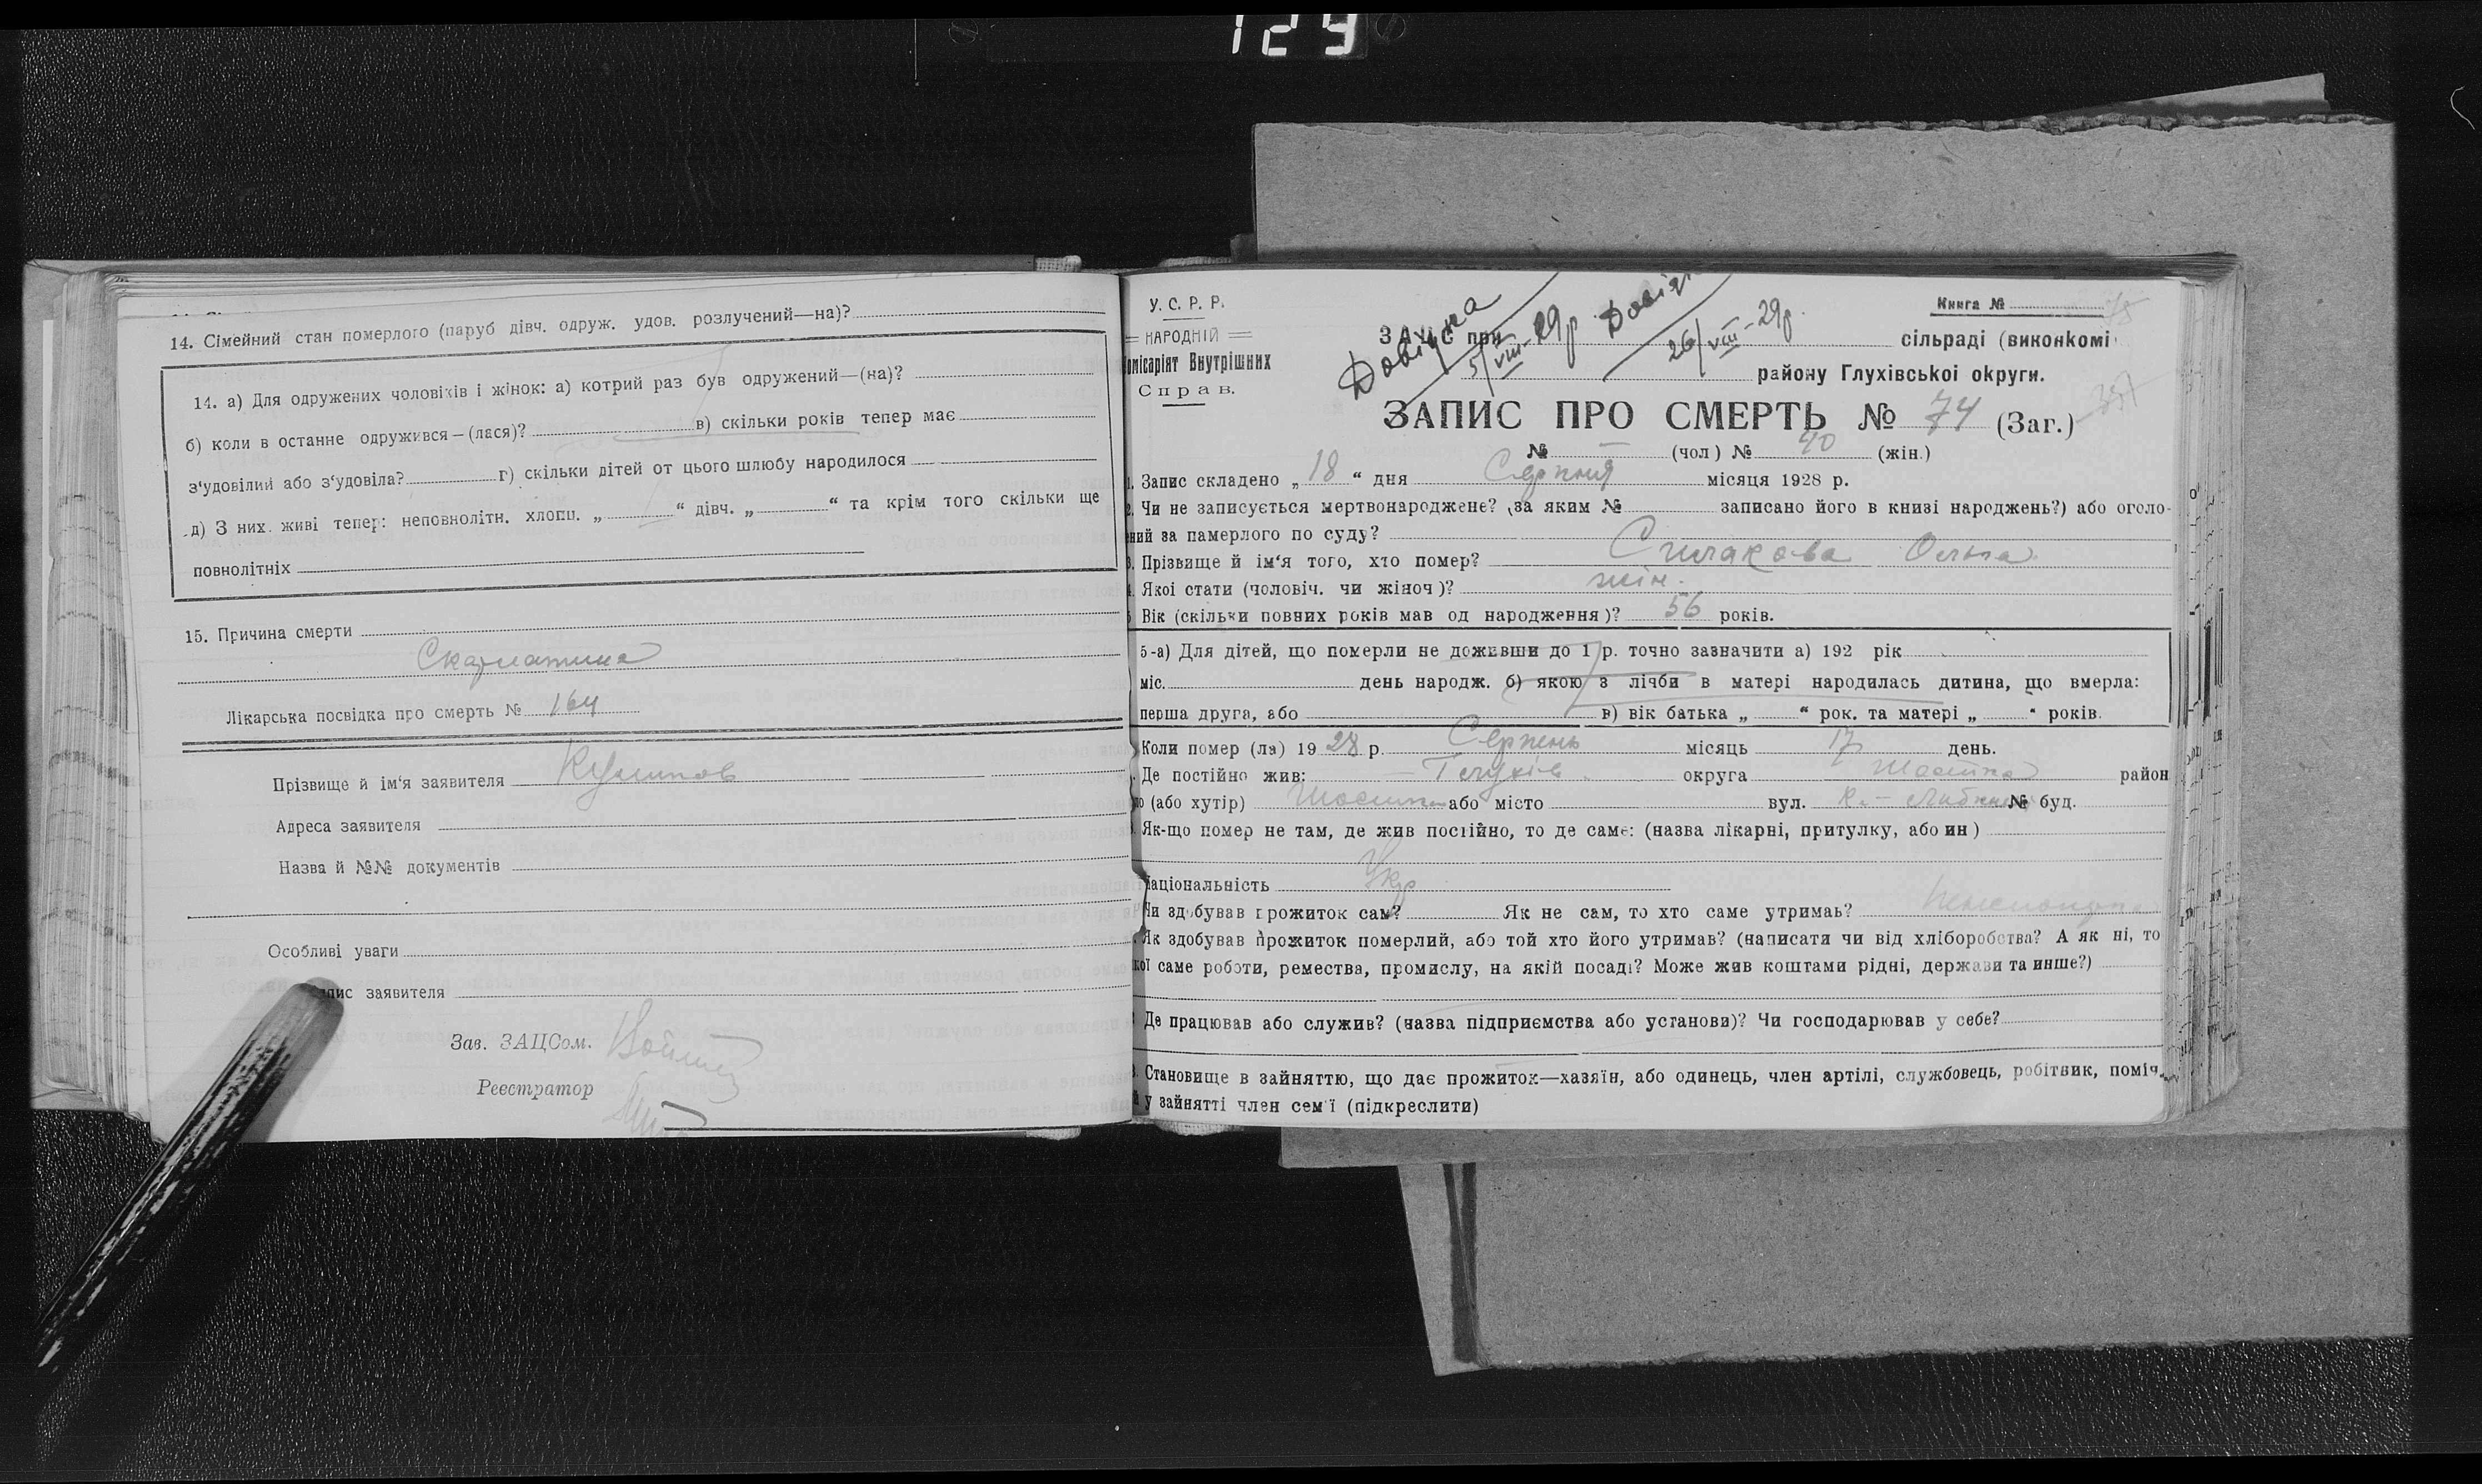 129
14. Сімейний стан померлого (паруб дівч. одруж. удов. розлучений—на)?
14. а) Для одружених чоловіків і жінок: а) котрий раз був одружений—(на)?
б) коли в останне одружився—(лася)? в) скільки років тепер має
з'удовілий або з'удовіла? г) скільки дітей от цього шлюбу народилося
д) З них живі тепер: неповнолітн. хлопц. „ “ дівч. „ “ та крім того скільки ще
повнолітніх
15. Причина смерти
Скарлатина
Лікарська посвідка про смерть № 164
Прізвище й ім'я заявителя
Адреса заявителя
Назва й №№ документів
Особливі уваги
пис заявителя
Зав. ЗАЦСом.
Реєстратор
У. С. Р. Р.
НАРОДНІЙ
омісаріят Внутрішних
Справ.
Довідка 5/VIII-29р
26/VIII-29р.
Книга № 75
ЗАЦС при сільраді (виконкомі
району Глухівської округи.
ЗАПИС ПРО СМЕРТЬ № 74 (Заг.)
№ — (чол) № 40 (жін.)
1. Запис складено „18“ дня Серпня місяця 1928 р.
2. Чи не записується мертвонароджене? (за яким № записано його в книзі народжень?) або оголо-
ний за памерлого по суду?
3. Прізвище й ім'я того, хто помер? Ольга
4. Якої стати (чоловіч. чи жіноч)? жін.
5 Вік (скільки повних років мав од народження)? 56 років.
5-а) Для дітей, що померли не доживши до 1 р. точно зазначити а) 192 рік
міс. день народж. б) якою з лічби в матері народилась дитина, що вмерла:
перша друга, або в) вік батька „ “ рок. та матері „ “ років.
Коли помер (ла) 1928 р. Серпень місяць 17 день.
Де постійно жив: Глухів округа Шостка район
(або хутір) Шостка або місто вул. № буд.
Як-що помер не там, де жив постійно, то де саме: (назва лікарні, притулку, або ин)
Національність Укр
Чи здобував прожиток сам? Як не сам, то хто саме утримав?
Як здобував прожиток померлий, або той хто його утримав? (написати чи від хліборобства? А як ні, то
кої саме роботи, ремества, промислу, на якій посаді? Може жив коштами рідні, держави та инше?)
Де працював або служив? (назва підприємства або установи)? Чи господарював у себе?
Становище в зайняттю, що дає прожиток—хазяїн, або одинець, член артілі, службовець, робітник, поміч.
й у зайнятті член сем'ї (підкреслити)